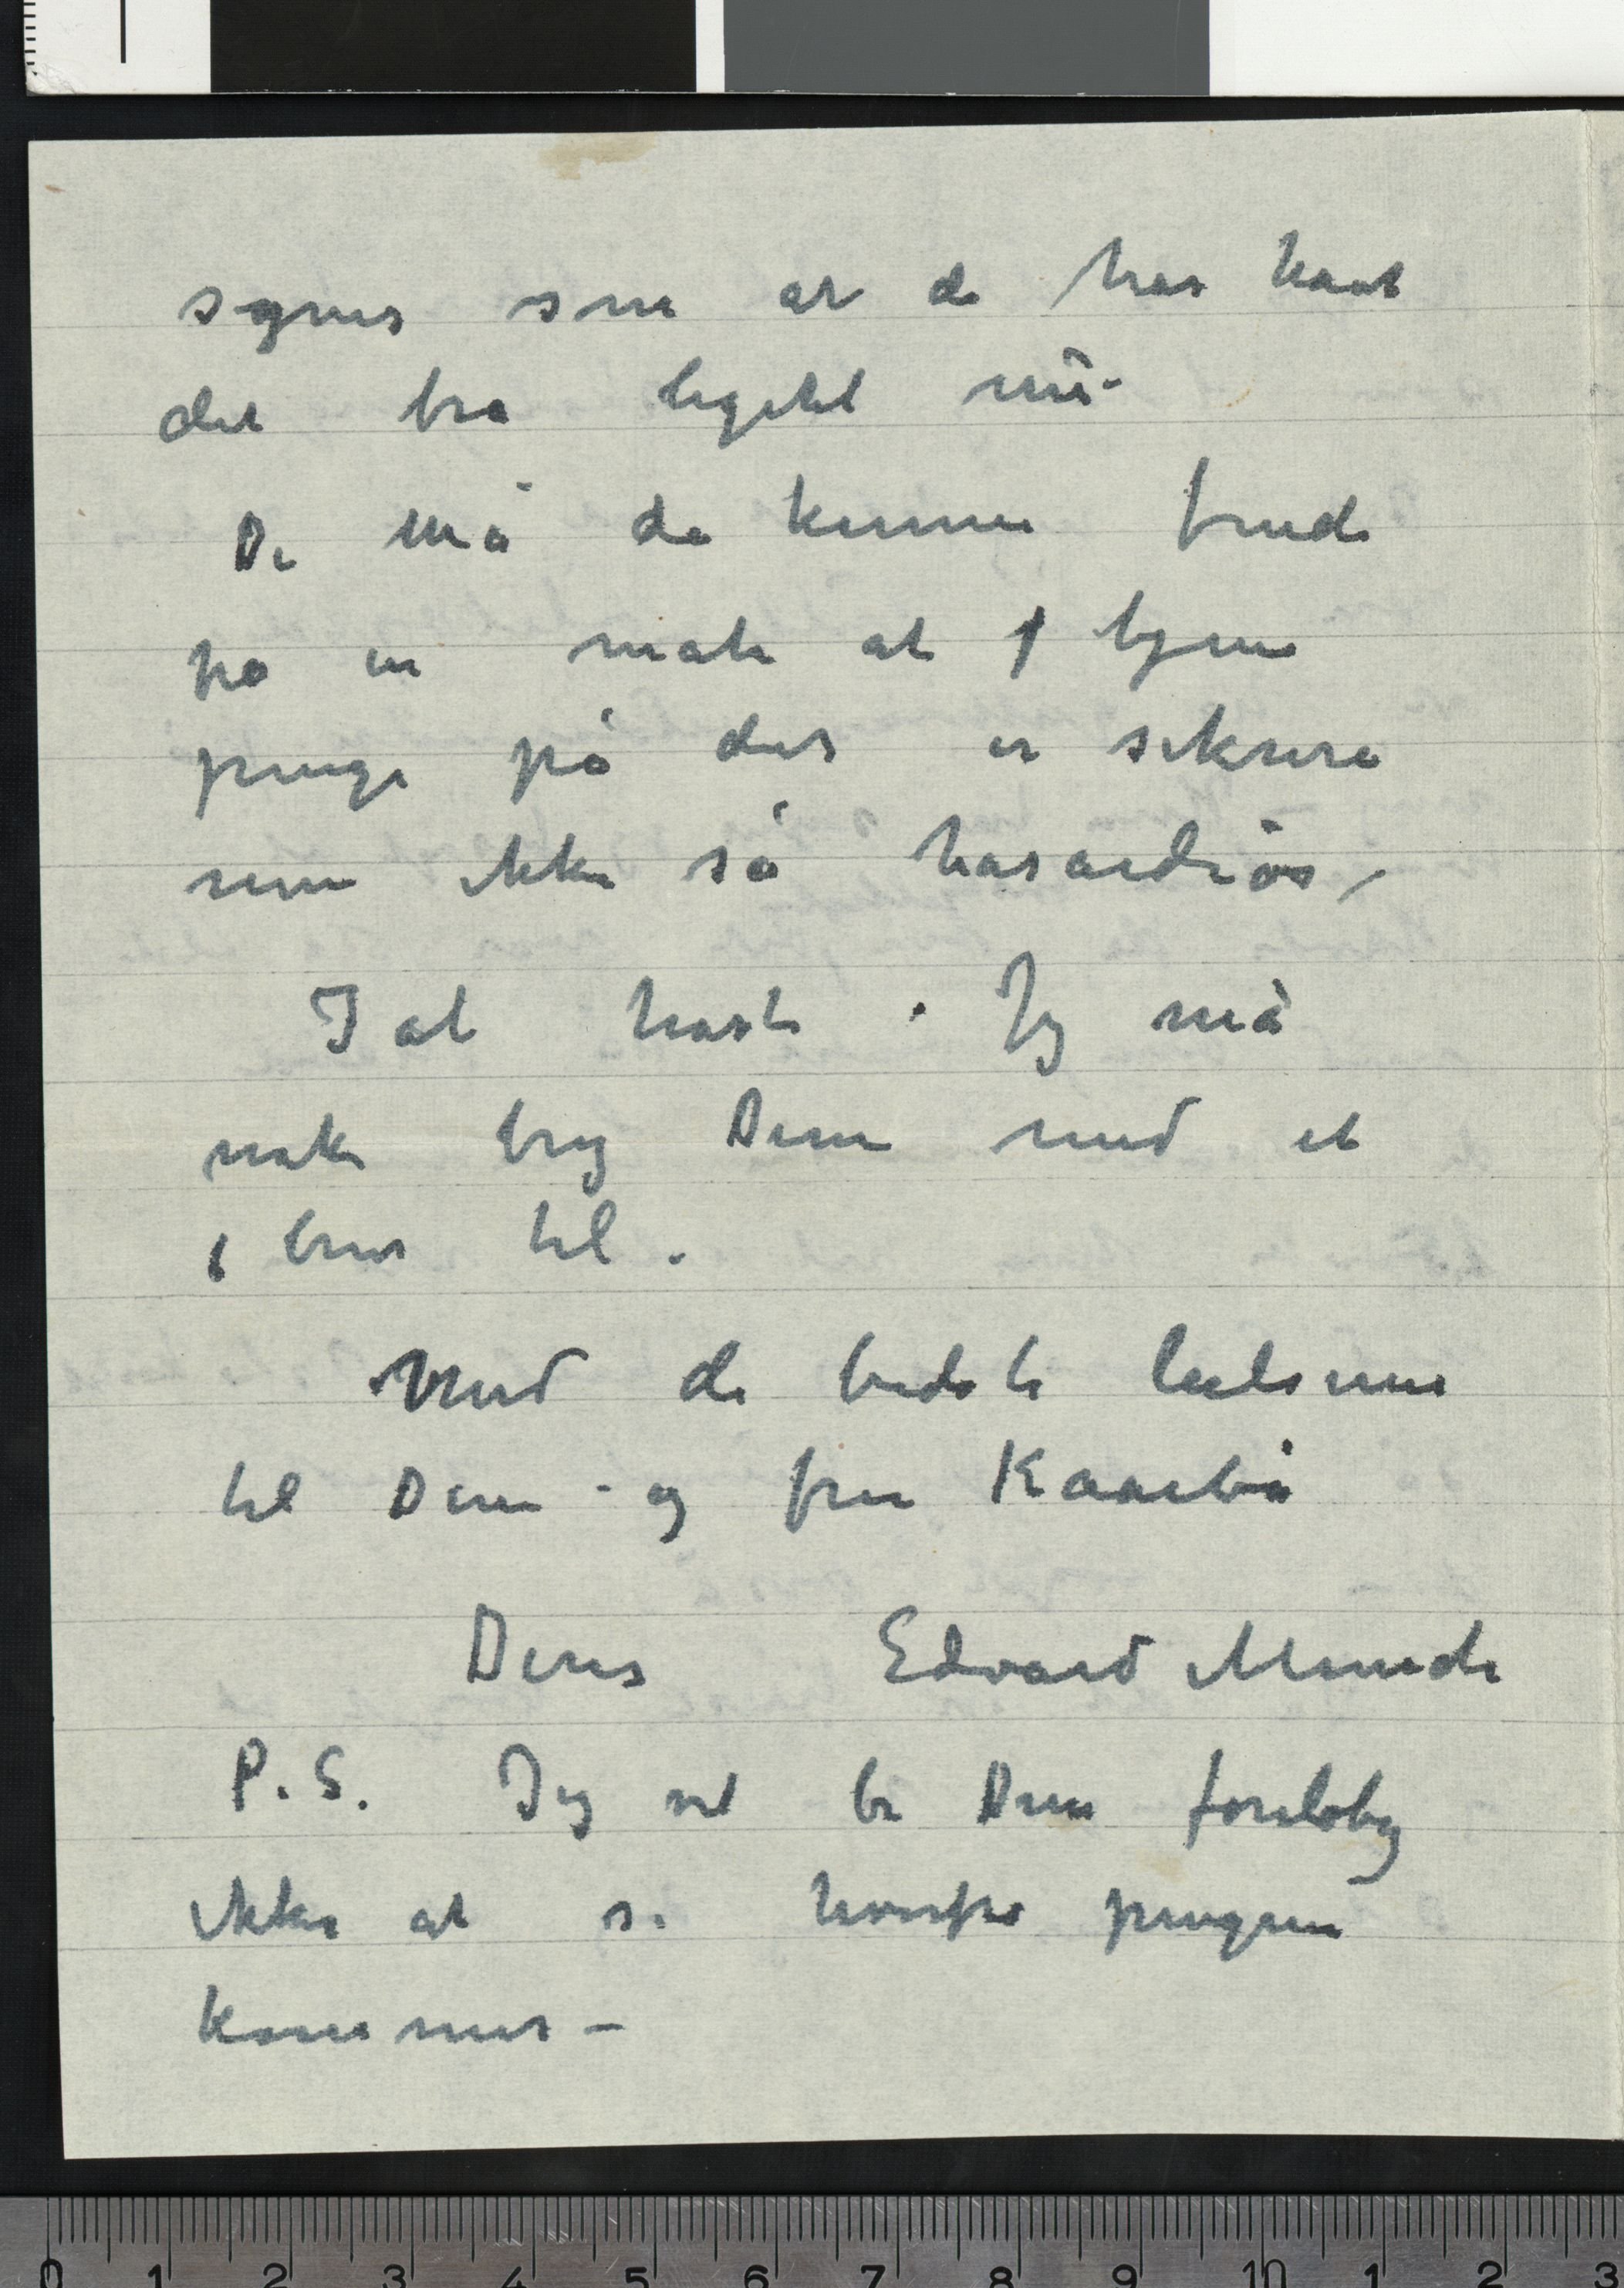 synes som at de har havt
det bra ligetil nu –
De må da kunne finde
på en måte at tjene
penge på der er sikrere
men ikke så hasardiøs –
I al hast. Jeg må
nok bry Dem med et
brev til.
Med de bedste hilsener
til Dem – og fru Kaarbø
Deres Edvard Munch
P.S. Jeg vil be Dem foreløbig
ikke at si hvorfra pengene
kommer –